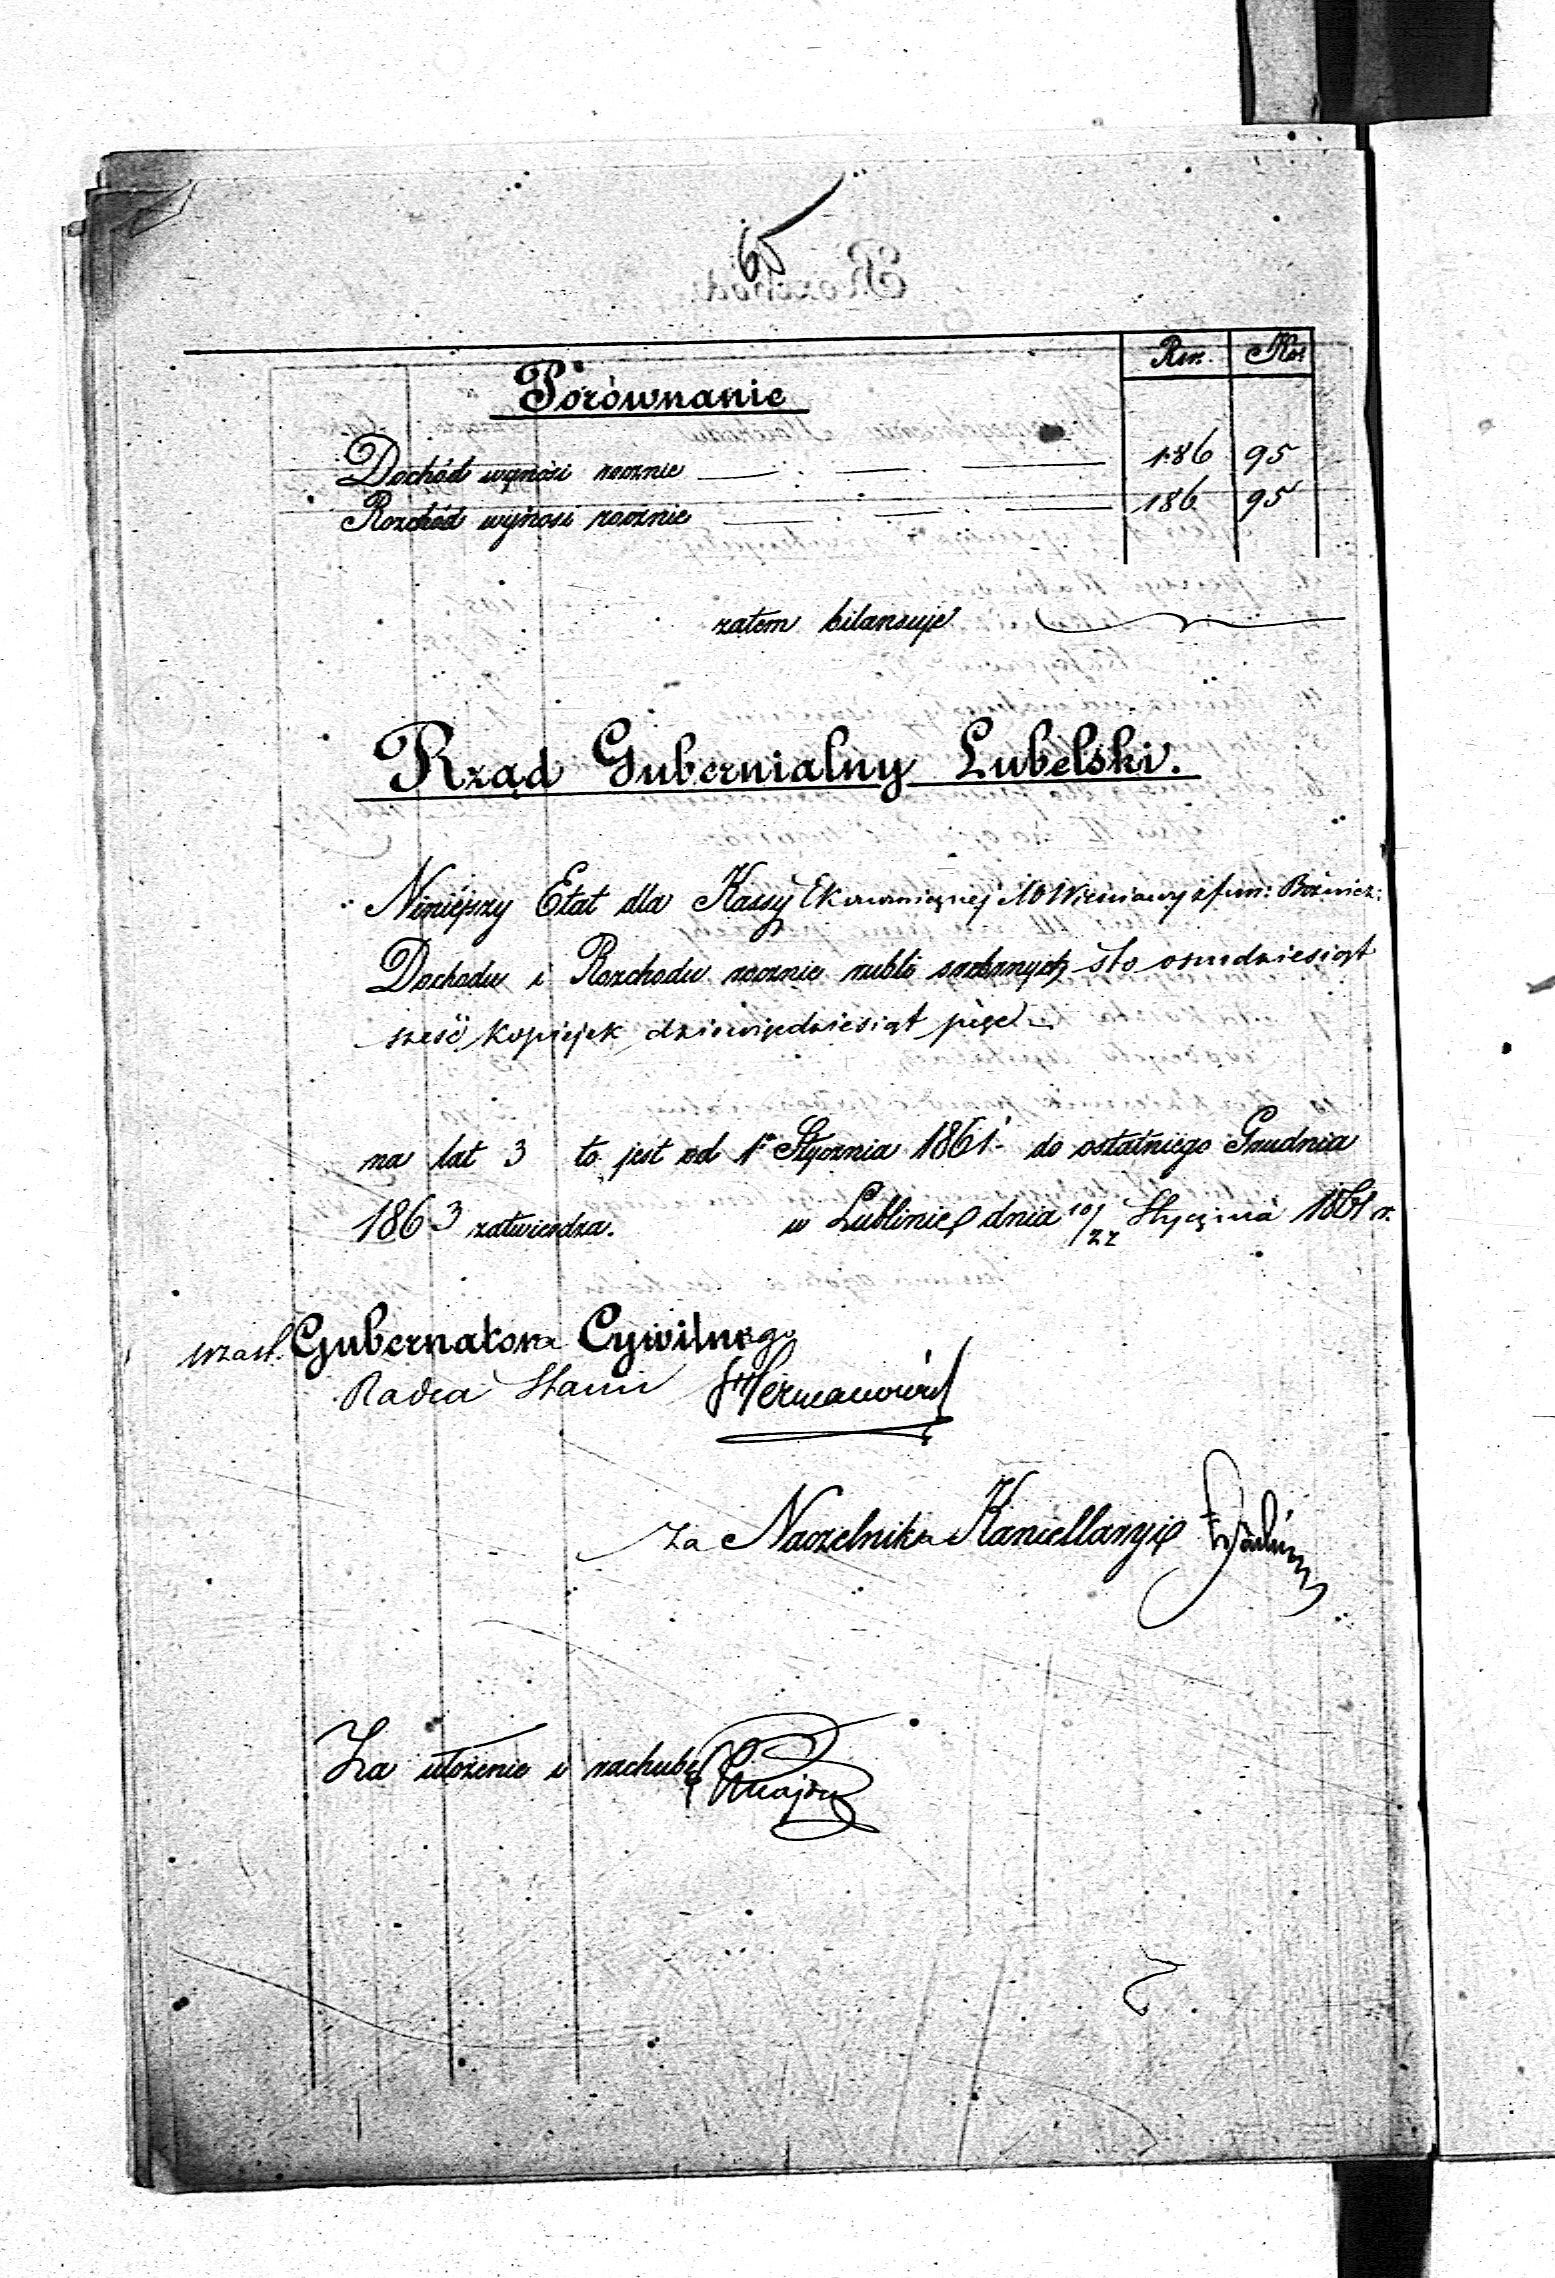 Rsr. Kop.
Porównanie
Dochód wynosi rocznie 186 95
Rozchód wynosi rocznie 186 95
zatem bilansuje
Rząd Gubernialny Lubelski.
Niniejszy Etat dla Kassy Ekonomicznej M Wieniawy z fun: Bożnicz:
Dochodu i Rozchodu rocznie rubli srebrnych sto osmdziesiąt
sześć kopiejek dziewięćdziesiąt pięć
na lat 3 to jest od 1o Stycznia 1861 do ostatniego Grudnia
1863 zatwierdza. w Lublinie dnia 10/22 Stycznia 1861 r.
w zast. Gubernatora Cywilnego
Radca Stanu
za Naczelnika Kancellaryi
Za ułożenie i rachubę